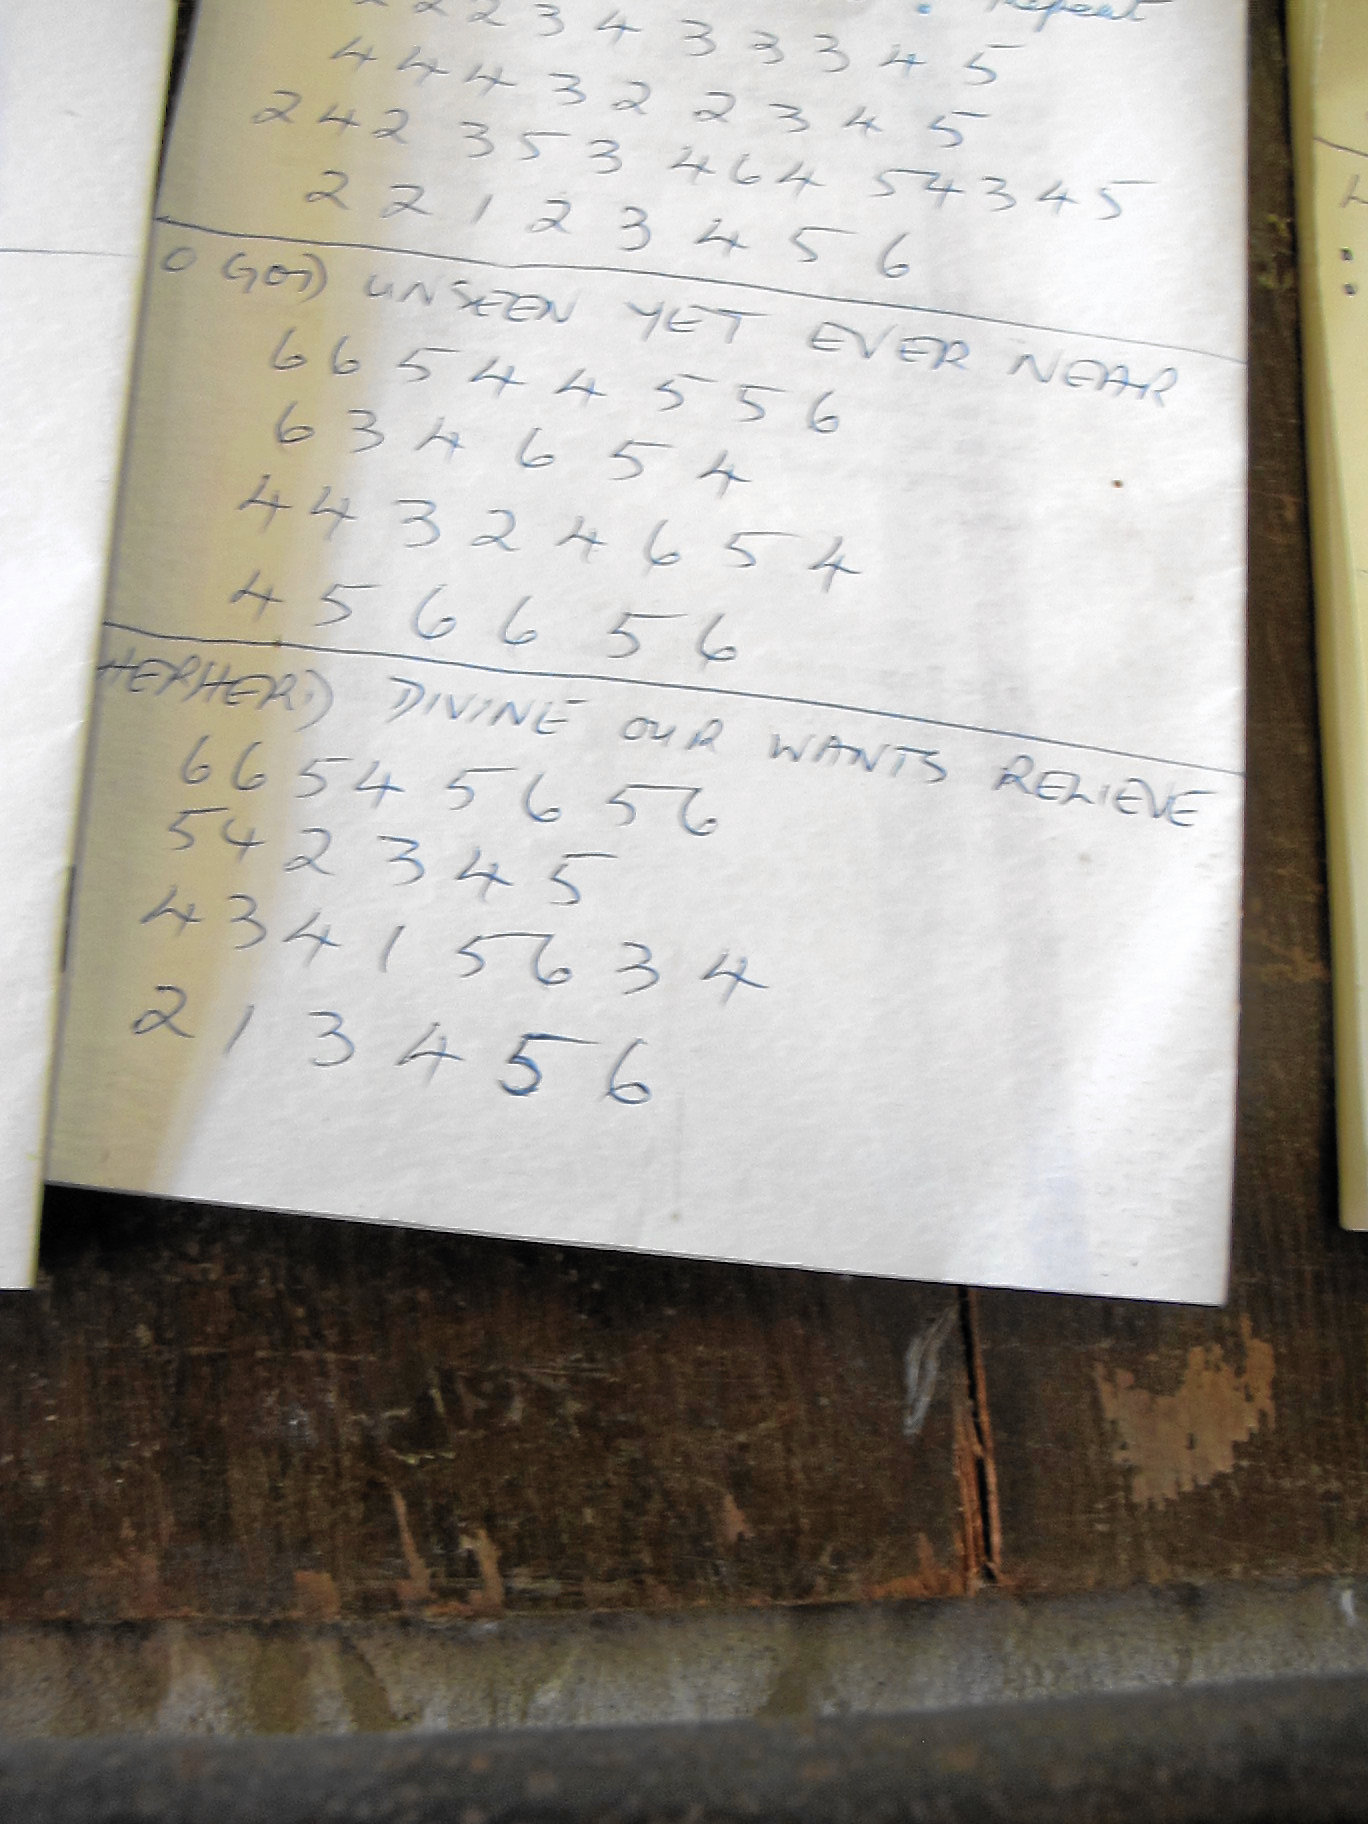 Repeat
2 2 2 3 4 3 3 3 4 5
4 4 4 3 2 2 3 4 5
2 4 2 3 5 3 4 6 4 5 4 3 4 5
2 2 1 2 3 4 5 6
O GOD UNSEEN YET EVER NEAR
6 6 5 4 4 5 5 6
6 3 4 6 5 4
4 4 3 2 4 6 5 4
4 5 6 6 5 6
HEPHERD DIVINE OUR WANTS RELIEVE
6 6 5 4 5 6 5 6
5 4 2 3 4 5
4 3 4 1 5 6 3 4
2 1 3 4 5 6